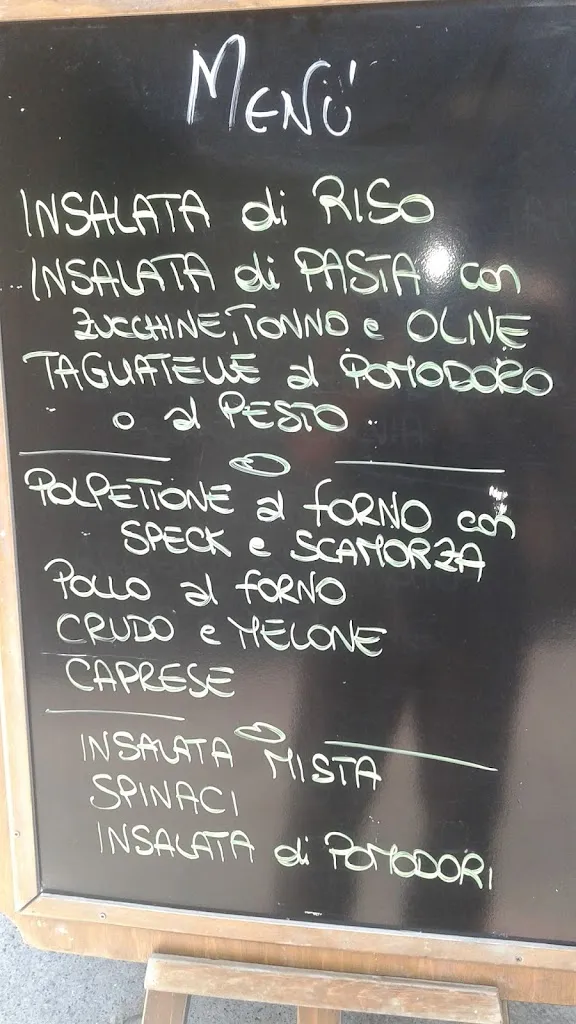 MENÙ
INSALATA di RISO
INSALATA di PASTA con
ZUCCHINE, TONNO e OLIVE
TAGLIATELLE al POMODORO
o al PESTO
POLPETTONE al FORNO con
SPECK e SCAMORZA
POLLO al FORNO
CRUDO e MELONE
CAPRESE
INSALATA MISTA
SPINACI
INSALATA di POMODORI